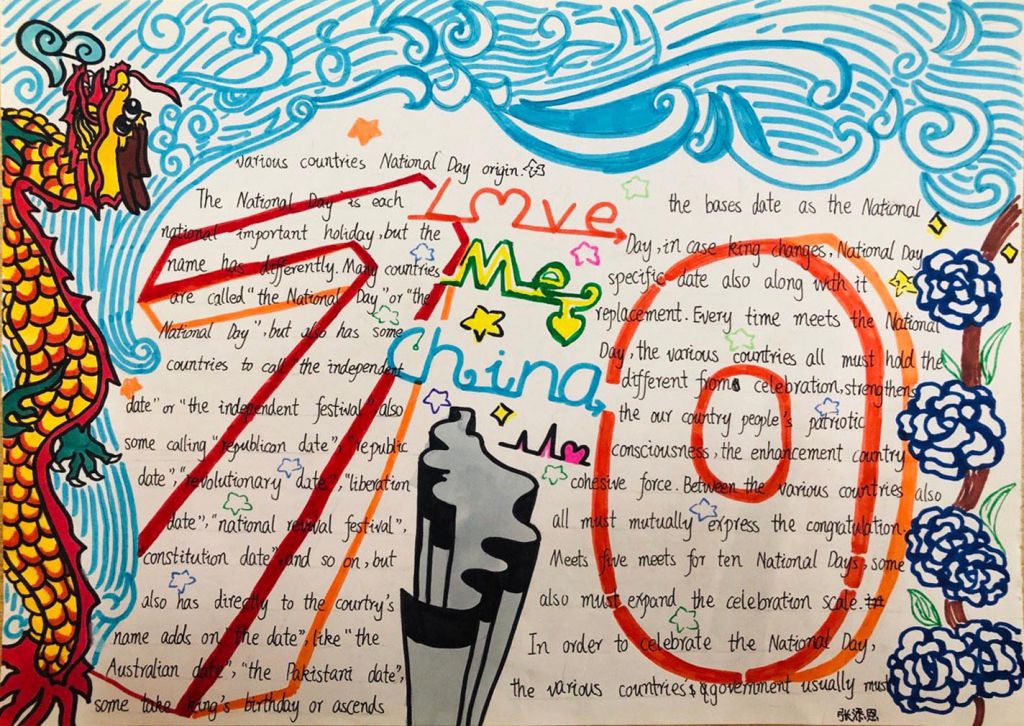 various countries National Day origin.
The National Day is each
national important holiday, but the
name has differently. Many countries
are called "the National Day" or "the
National Day", but also has some
countries to call "the independent
date" or "the independent festival", also
some calling "republican date", "republic
date", "revolutionary date", "liberation
date", "national revival festival",
constitution date", and so on, but
also has directly to the courtry's
name adds on "the date", like "the
Australian date", "the Pakistani date",
some take king's birthday or ascends
Love
Me
China
the bases date as the National
Day, in case king changes, National Day
specific date also along with it
replacement. Every time meets the National
Day, the various countries all must hold the
different from celebration, strengthens
the our country people's patriotic
consciousness, the enhancement country
cohesive force. Between the various countries also
all must mutually express the congratulation.
Meets five meets for ten National Days, some
also must expand the celebration scale.
In order to celebrate the National Day,
the various countries government usually must
70
张添恩